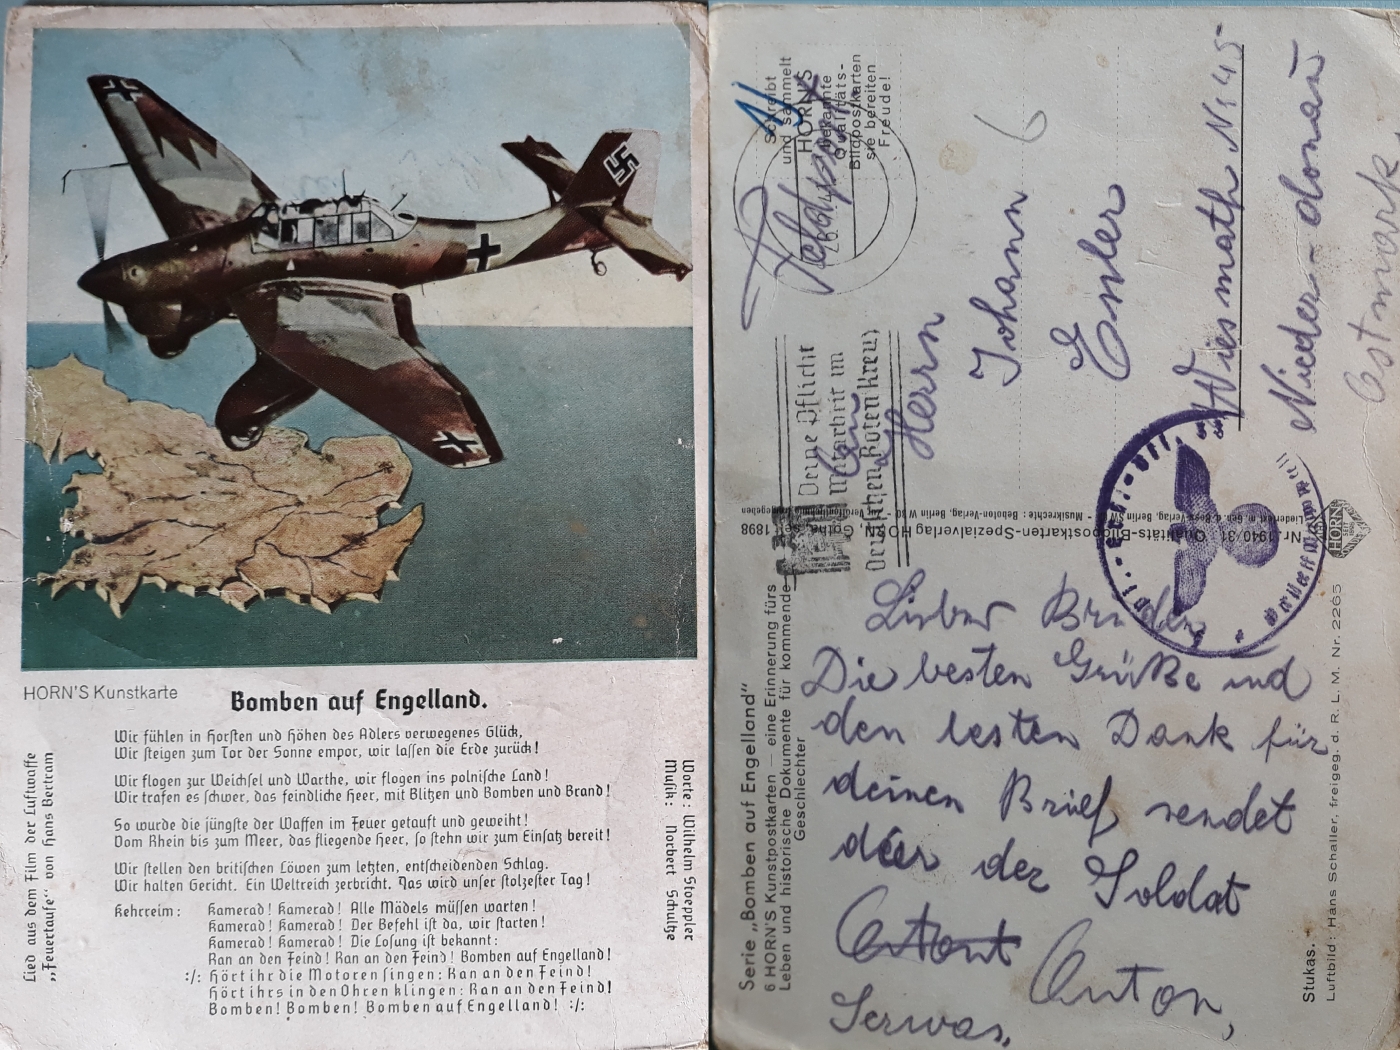 HORN'S Kunstkarte
Bomben auf Engelland.
Wir fühlen in Horsten und Höhen des Adlers verwegenes Glück,
Wir steigen zum Tor der Sonne empor, wir lassen die Erde zurück!
Wir flogen zur Weichsel und Warthe, wir flogen ins polnische Land!
Wir trafen es schwer, das feindliche Heer, mit Blitzen und Bomben und Brand!
So wurde die jüngste der Waffen im Feuer getauft und geweiht!
Vom Rhein bis zum Meer, das fliegende Heer, so stehn wir zum Einsatz bereit!
Wir stellen den britischen Löwen zum letzten, entscheidenden Schlag.
Wir halten Gericht. Ein Weltreich zerbricht. Das wird unser stolzester Tag!
Kehrreim: Kamerad! Kamerad! Alle Mädels müssen warten!
Kamerad! Kamerad! Der Befehl ist da, wir starten!
Kamerad! Kamerad! Die Losung ist bekannt:
Ran an den Feind! Ran an den Feind! Bomben auf Engelland!
:/: Hört ihr die Motoren singen: Ran an den Feind!
Hört ihrs in den Ohren klingen: Ran an den Feind!
Bomben! Bomben! Bomben auf Engelland! :/:
Lied aus dem Film der Luftwaffe
„Feuertaufe" von Hans Bertram
Worte: Wilhelm Stoeppler
Musik: Norbert Schultze
Schreibt
und sammelt
HORN'S
bekannte
Qualitäts-
Bildpostkarten
sie bereiten
Freude!
Feldpost
Deine Pflicht
Mitarbeit im
Deutschen Roten Kreuz
An
Herrn
Johann
Eisler
Wiesmath Nr 45
Nieder-donau
Ostmark
6
Nr. 1940/31: Qualitäts-Bildpostkarten-Spezialverlag HORN, Gotha, seit 1898
HORN
SEIT
1898
Serie „Bomben auf Engelland"
6 HORN'S Kunstpostkarten — eine Erinnerung fürs
Leben und historische Dokumente für kommende
Geschlechter
Lieber Bruder
Die besten Grüße und
den besten Dank für
deinen Brief sendet
dir der Soldat
Anton,
Servas,
Stukas.
Luftbild: Hans Schaller, freigeg. d. R. L. M. Nr. 2265